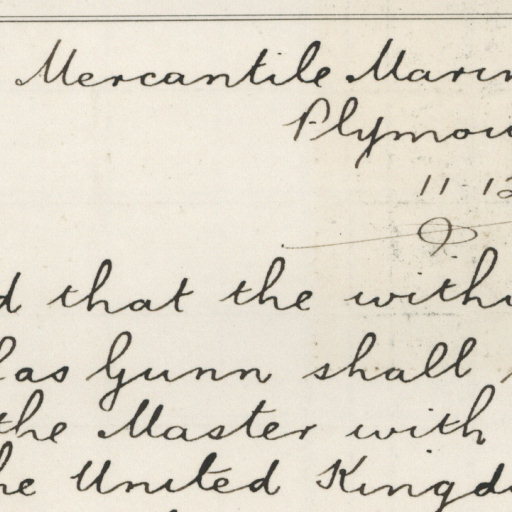 Mercantile Marin
Plymou
11-12
d that the withi
las Gunn shall
the Master with
he United Kingd